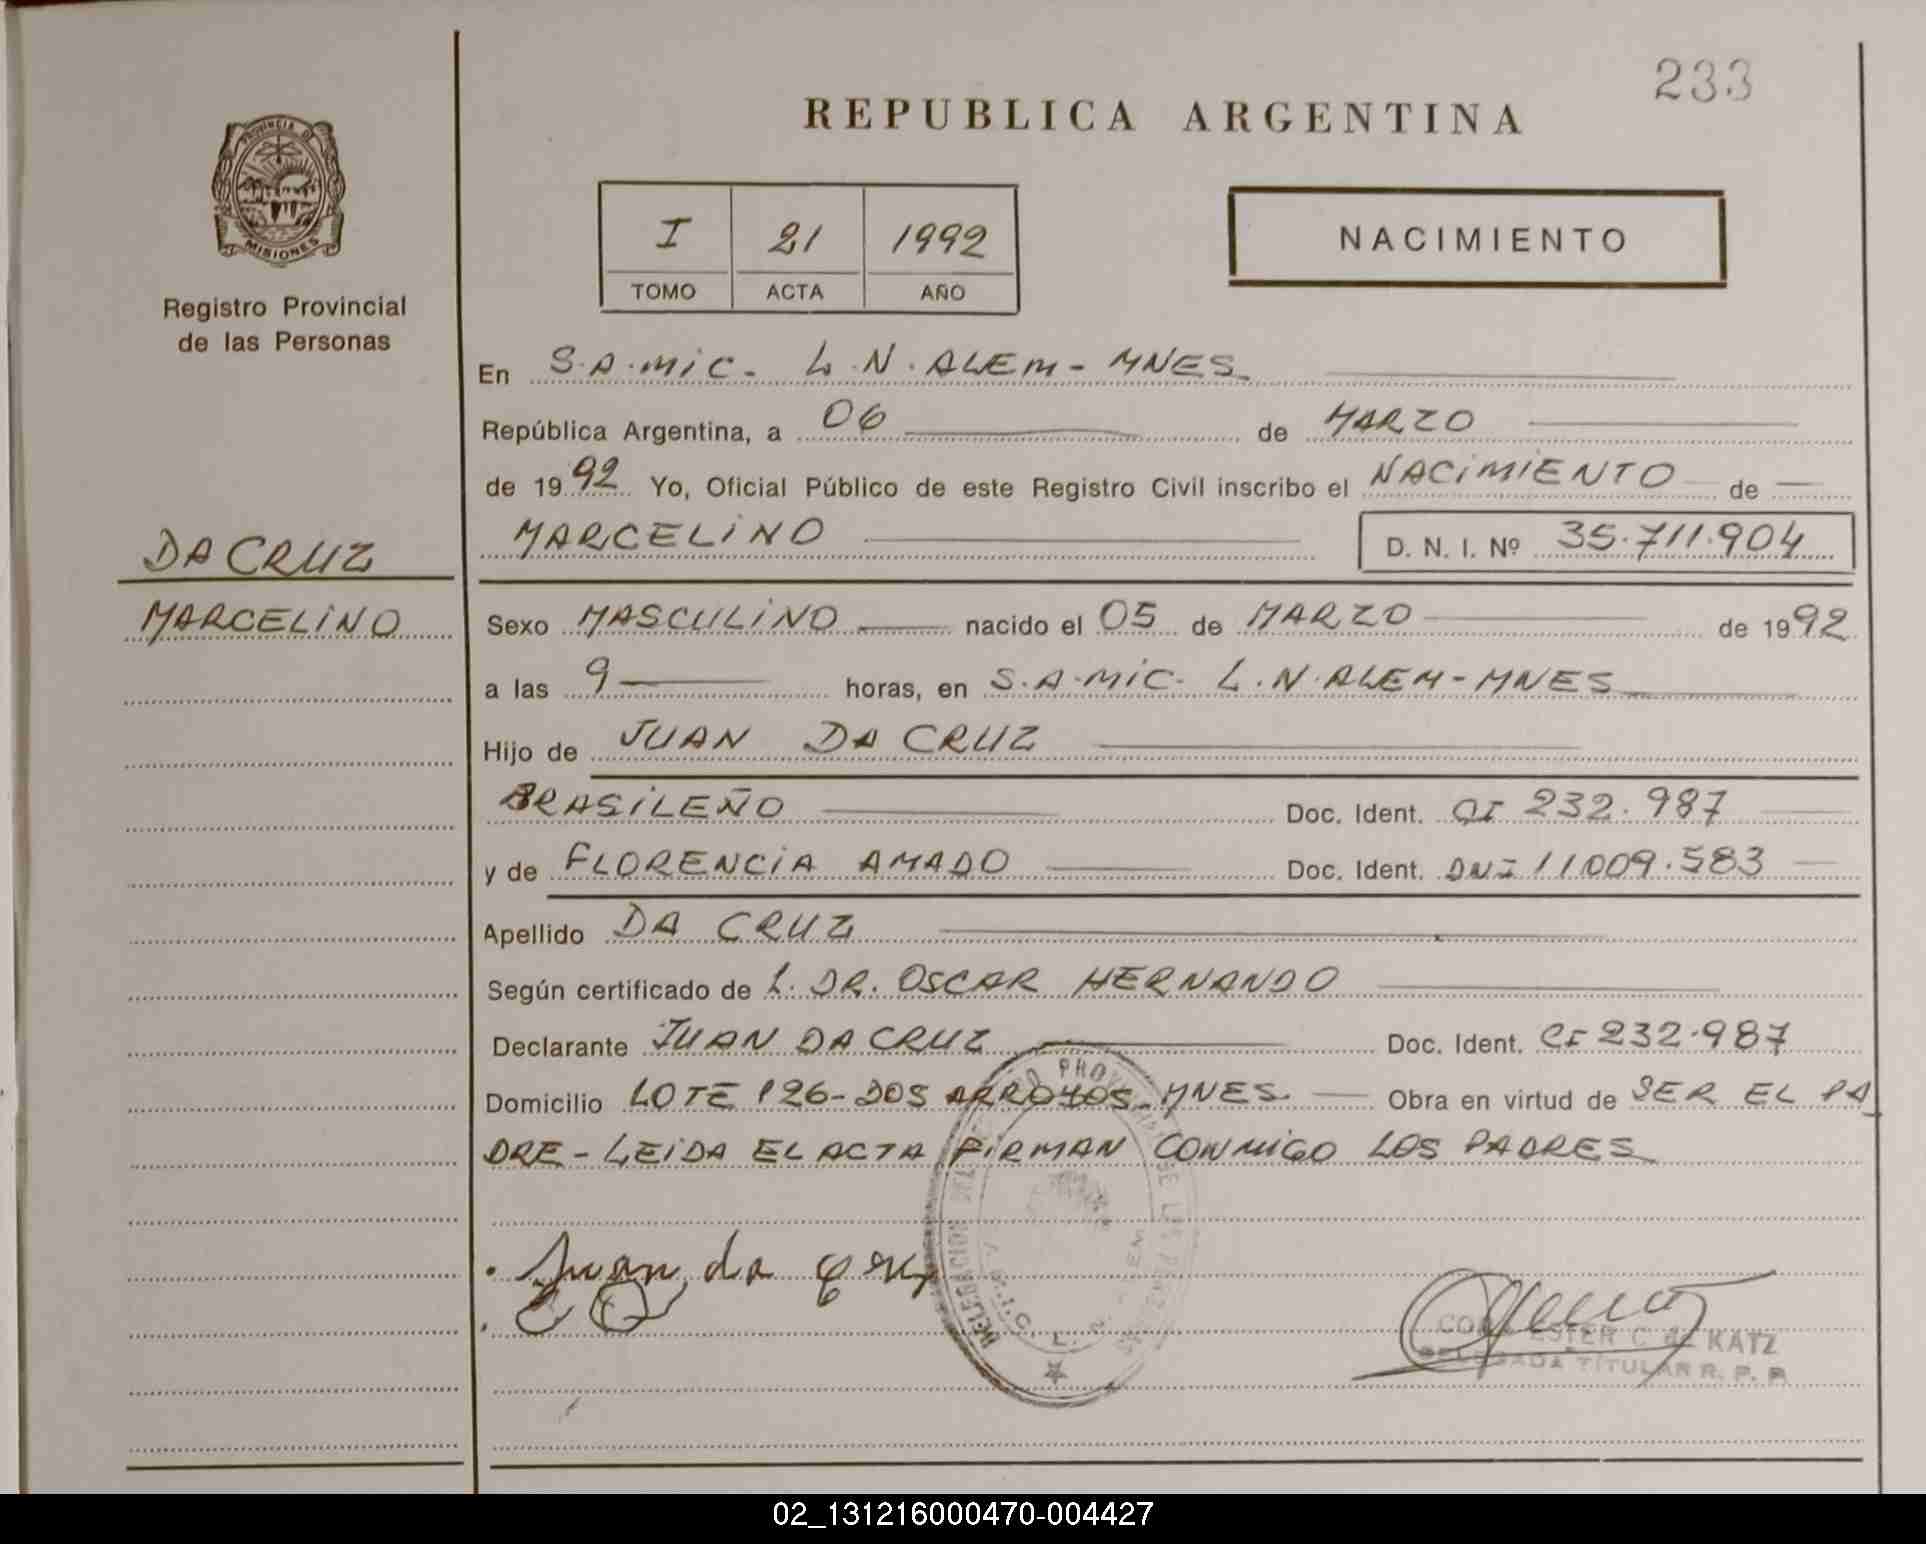 233
REPUBLICA ARGENTINA
PROVINCIA DE
MISIONES
Registro Provincial
de las Personas
I 21 1992
TOMO ACTA AÑO
NACIMIENTO
En S.A.MIC. L.N.ALEM-MNES.
República Argentina, a 06 de MARZO
de 1992 Yo, Oficial Público de este Registro Civil inscribo el NACIMIENTO de
MARCELINO D. N. I. Nº 35.711.904
DA CRUZ
MARCELINO
Sexo MASCULINO nacido el 05 de MARZO de 1992
a las 9 horas, en S.A.MIC. L.N.ALEM-MNES
Hijo de JUAN DA CRUZ
BRASILEÑO Doc. Ident. CI 232.987
y de FLORENCIA AMADO Doc. Ident. DNI 11.009.583
Apellido DA CRUZ
Según certificado de L. DR. OSCAR HERNANDO
Declarante JUAN DA CRUZ Doc. Ident. CI 232.987
Domicilio LOTE 126-DOS ARROYOS-MNES. Obra en virtud de SER EL PA
DRE-LEIDA EL ACTA FIRMAN CONMIGO LOS PADRES
Juan da Cruz
ESTER C de KATZ
DELEGADA TITULAR R. P. P.
02_131216000470-004427